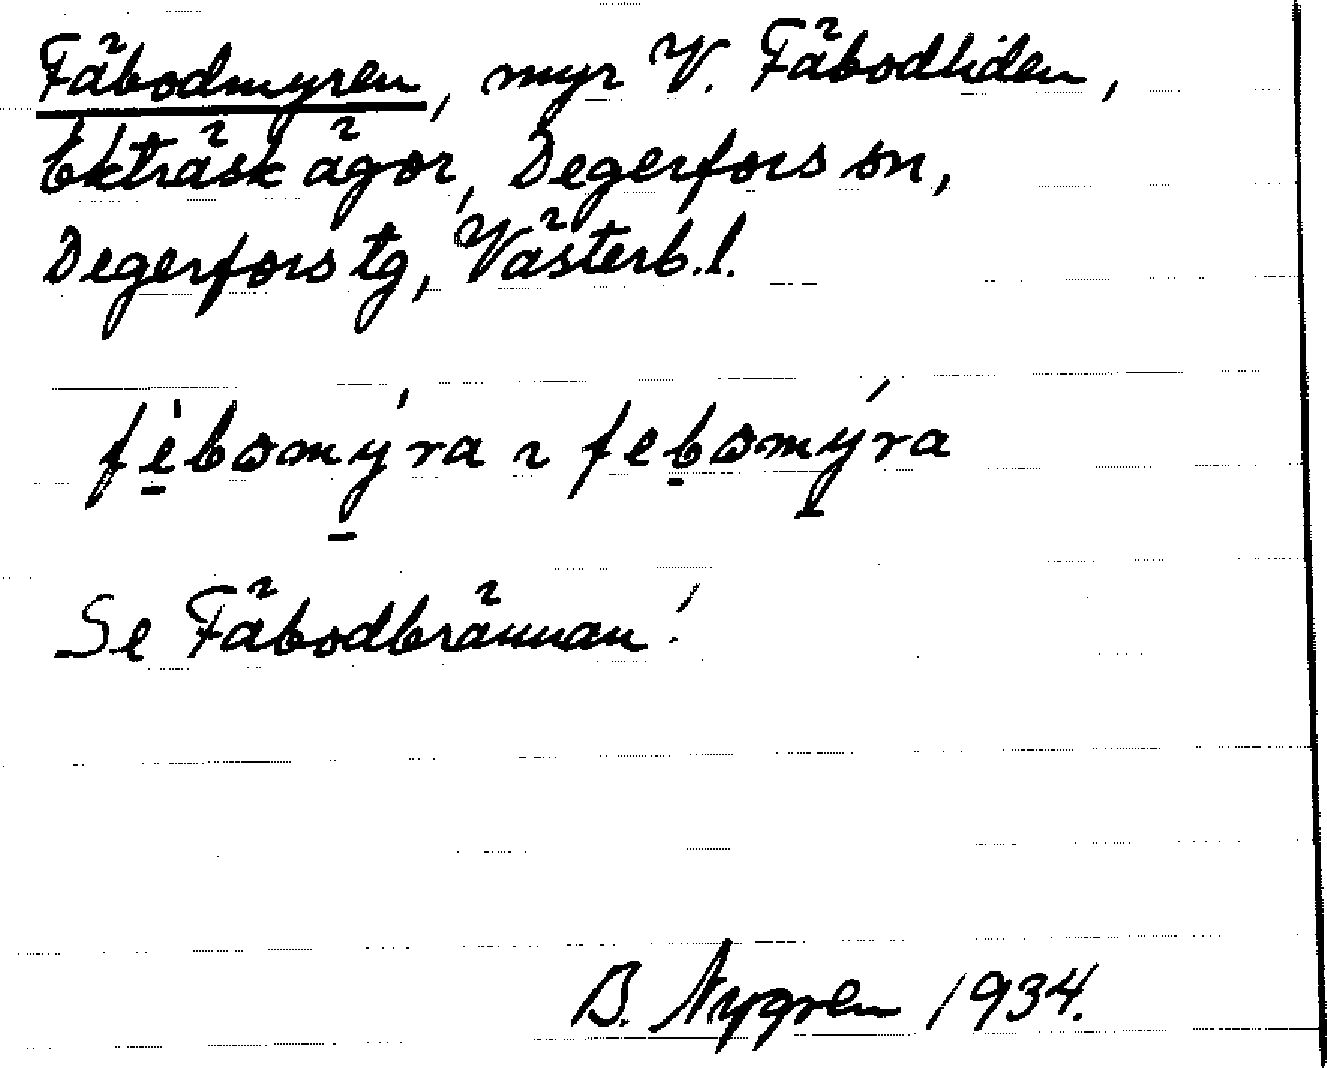 Fäbodmyren, myr V. Fäbodliden,
Ekträsk ägor, Degerfors sn,
Degerfors tg, Västerb.l.
fèbomýra ~ febomýra
Se Fäbodbrännan!
B. Nygren 1934.